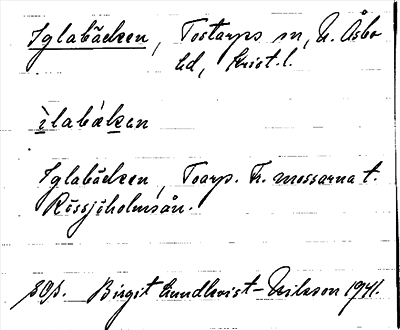 Iglabäcken, Tostarps m, N. Åsbo
hd, Krist. l.
ìlabákan
Iglabäcken, Toarp. Fr. mossarna t.
Rössjöholmsån.
SOP. Birgit Lundkvist-Nilsson 1941.